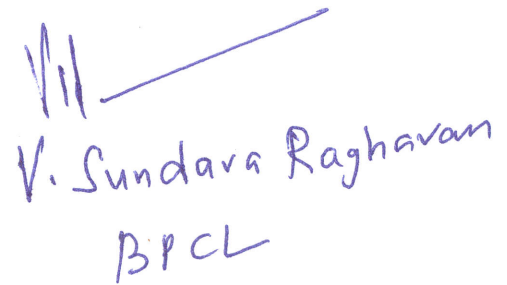 V. Sundara Raghavan
BPCL